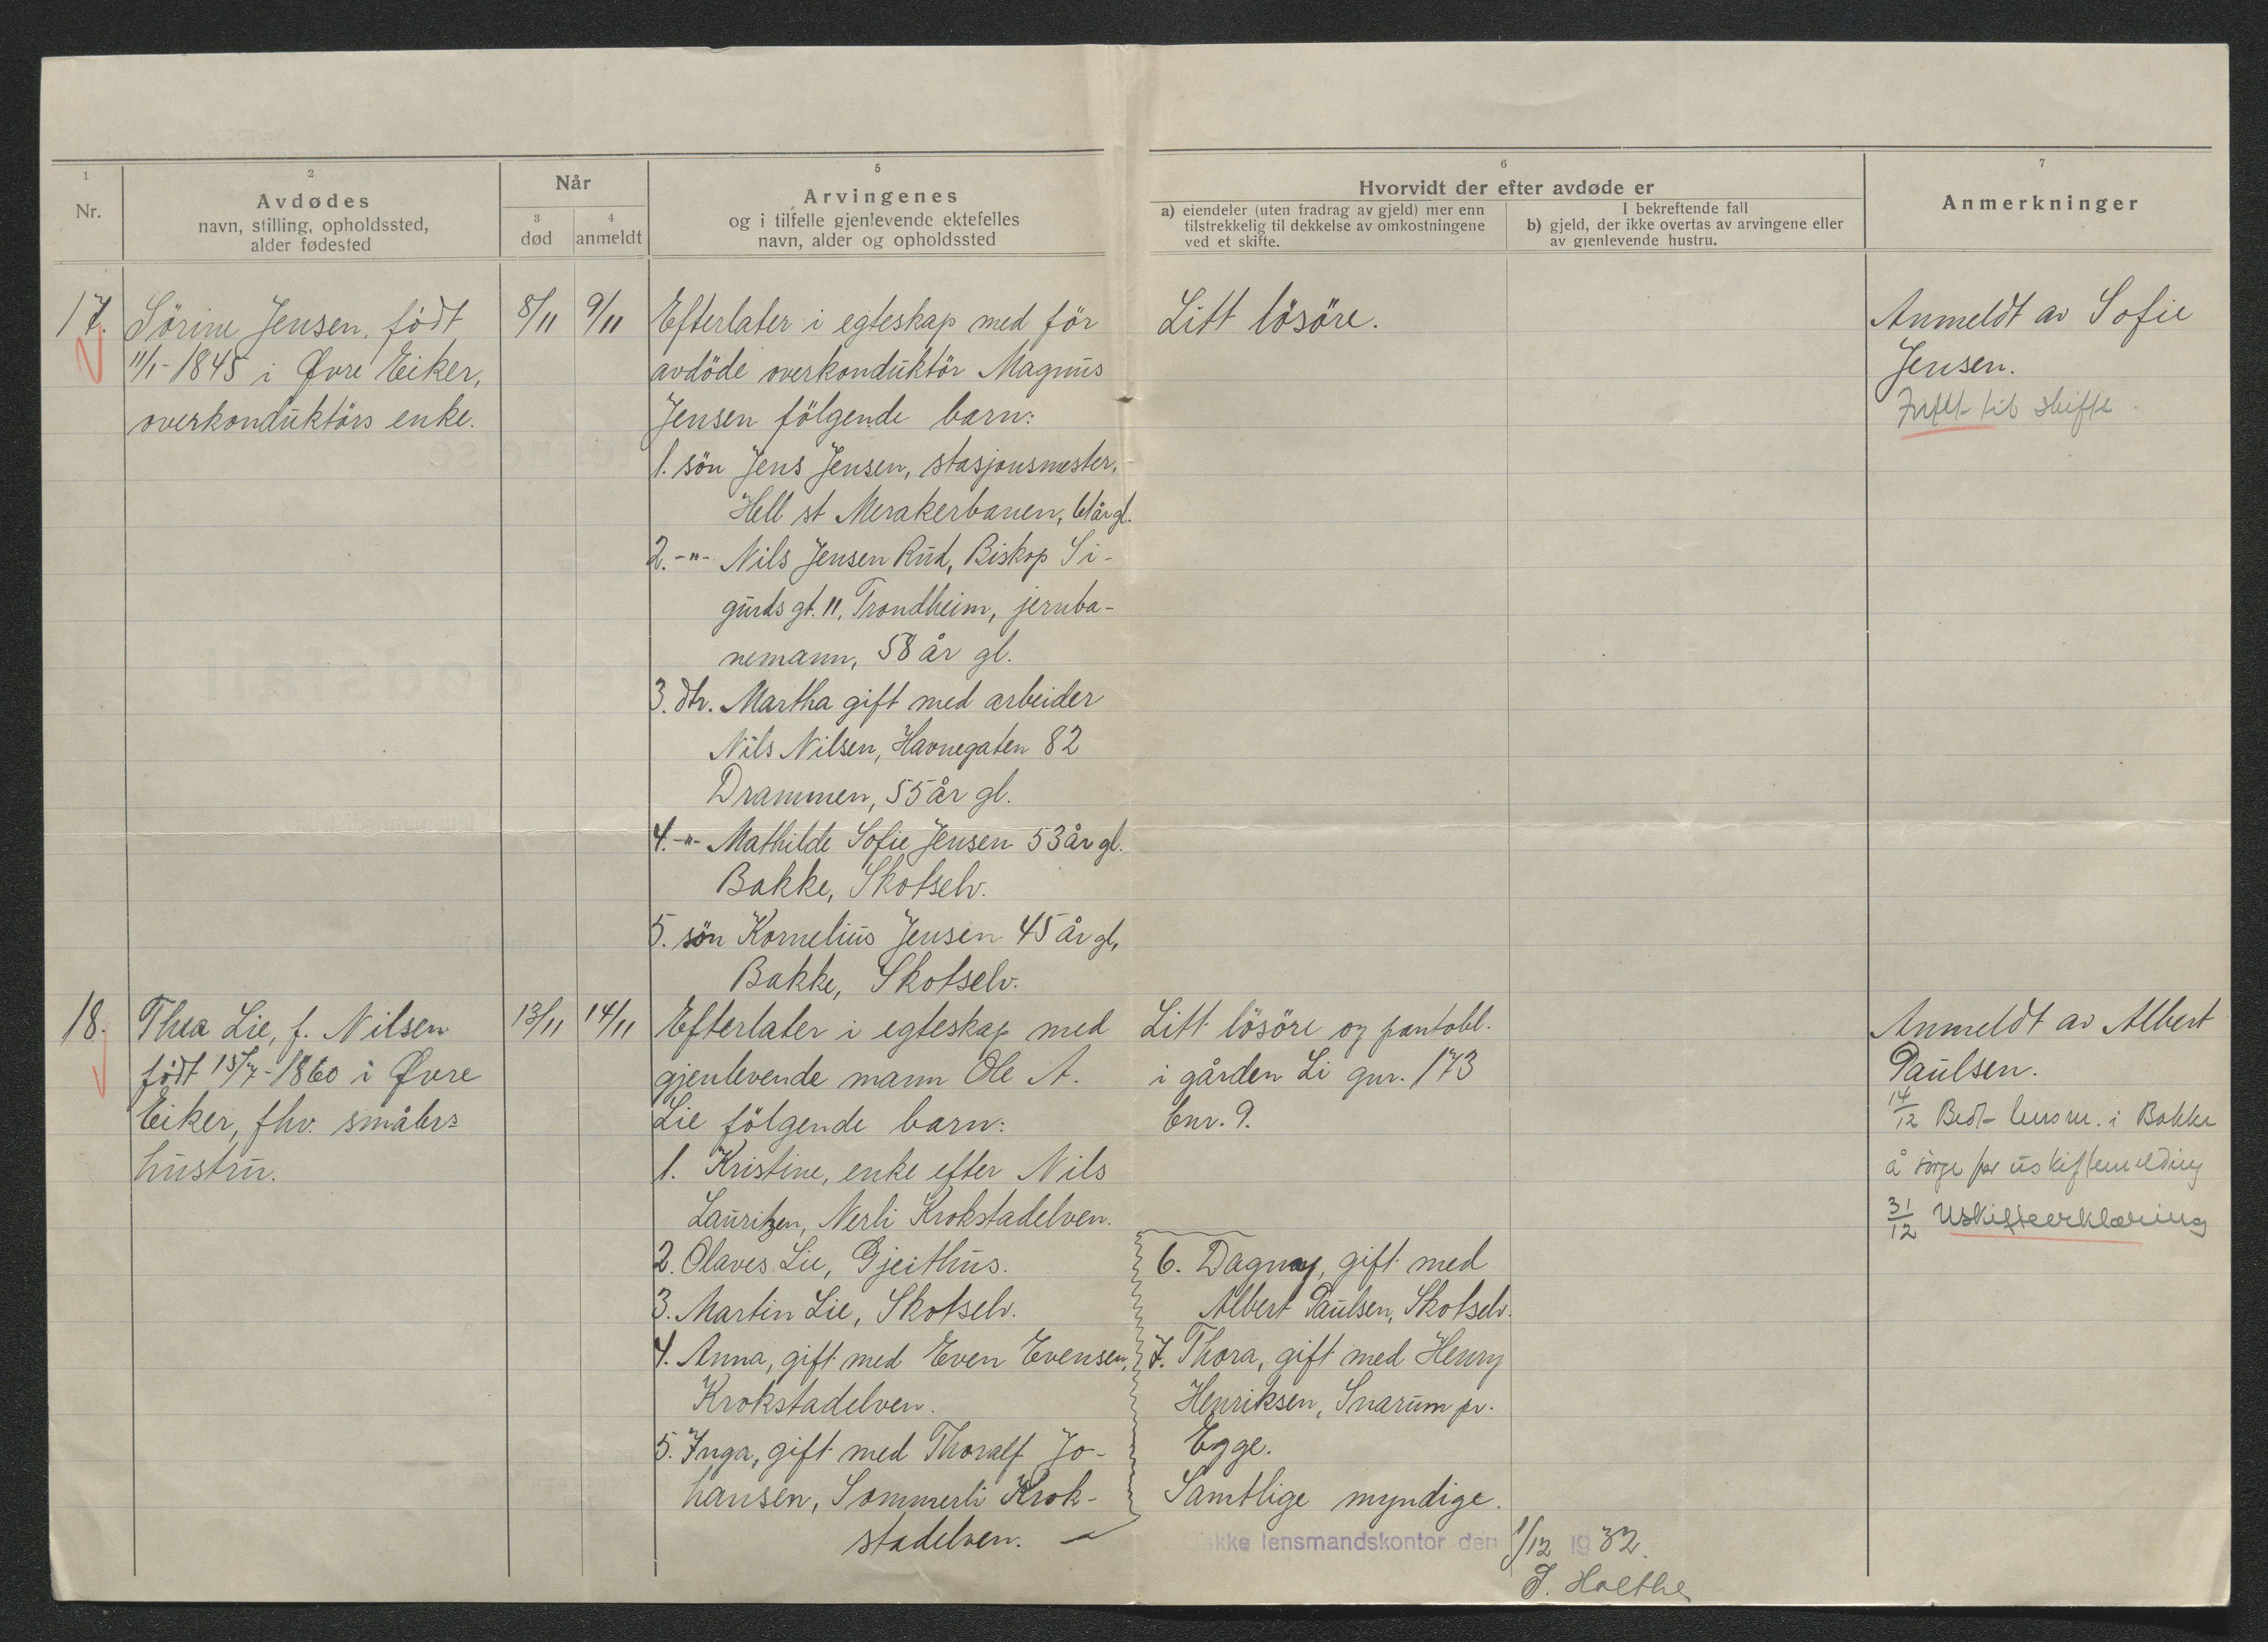 1
2
Når
5
6
7
Nr.
Avdødes
navn, stilling, opholdssted,
alder fødested
3
død
4
anmeldt
Arvingenes
og i tilfelle gjenlevende ektefelles
navn, alder og opholdssted
Hvorvidt der efter avdøde er
a) eiendeler (uten fradrag av gjeld) mer enn
tilstrekkelig til dekkelse av omkostningene
ved et skifte.
I bekreftende fall
b) gjeld, der ikke overtas av arvingene eller
av gjenlevende hustru.
Anmerkninger
17.
Sörine Jensen, födt
11/1-1845 i Øvre Eiker,
overkonduktörs enke.
8/11
9/11
Efterlater i egteskap med för
avdöde overkonduktör Magnus
Jensen fölgende barn:
1. sön Jens Jensen, stasjonsmester,
Hell st Merakerbanen, 61 år gl.
2. -"- Nils Jensen Rud, Biskop Si-
gurds gt. 11, Trondheim, jernba-
nemann, 58 år gl.
3. dtr. Martha gift med arbeider
Nils Nilsen, Havnegaten 82
Drammen, 55 år gl.
4. -"- Mathilde Sofie Jensen 53 år gl.
Bakke, Skotselv.
5. sön Kornelius Jensen 45 år gl,
Bakke, Skotselv.
Litt lösöre.
Anmeldt av Sofie
Jensen.
til skifte.
18.
Thea Lie, f. Nilsen
födt 15/7-1860 i Øvre
Eiker, fhv. småbr=
hustru.
13/11
14/11
Efterlater i egteskap med
gjenlevende mann Ole A.
Lie fölgende barn:
1. Kristine, enke efter Nils
Lauritzen, Nerli Krokstadelven.
2. Olaves Lie, Gjeithus.
3. Martin Lie, Skotselv.
4. Anna, gift med Even Evensen,
Krokstadelven.
5. Inga, gift med Thoralf Jo-
hansen, Sommerli Krok-
stadelven.
Litt lösöre og pantobl.
i gården Li gnr. 173
bnr. 9.
6. Dagny, gift med
Albert Paulsen, Skotselv.
7. Thora, gift med Henry
Henriksen, Snarum pr.
Egge.
Samtlige myndige.
akke lensmandskontor den 1/12 1932.
J. Holthe
Anmeldt av Albert
Paulsen.
14/12 Bedt lensm. i Bakke
å sörge for uskiftemelding
31/12 Uskifteerklæring